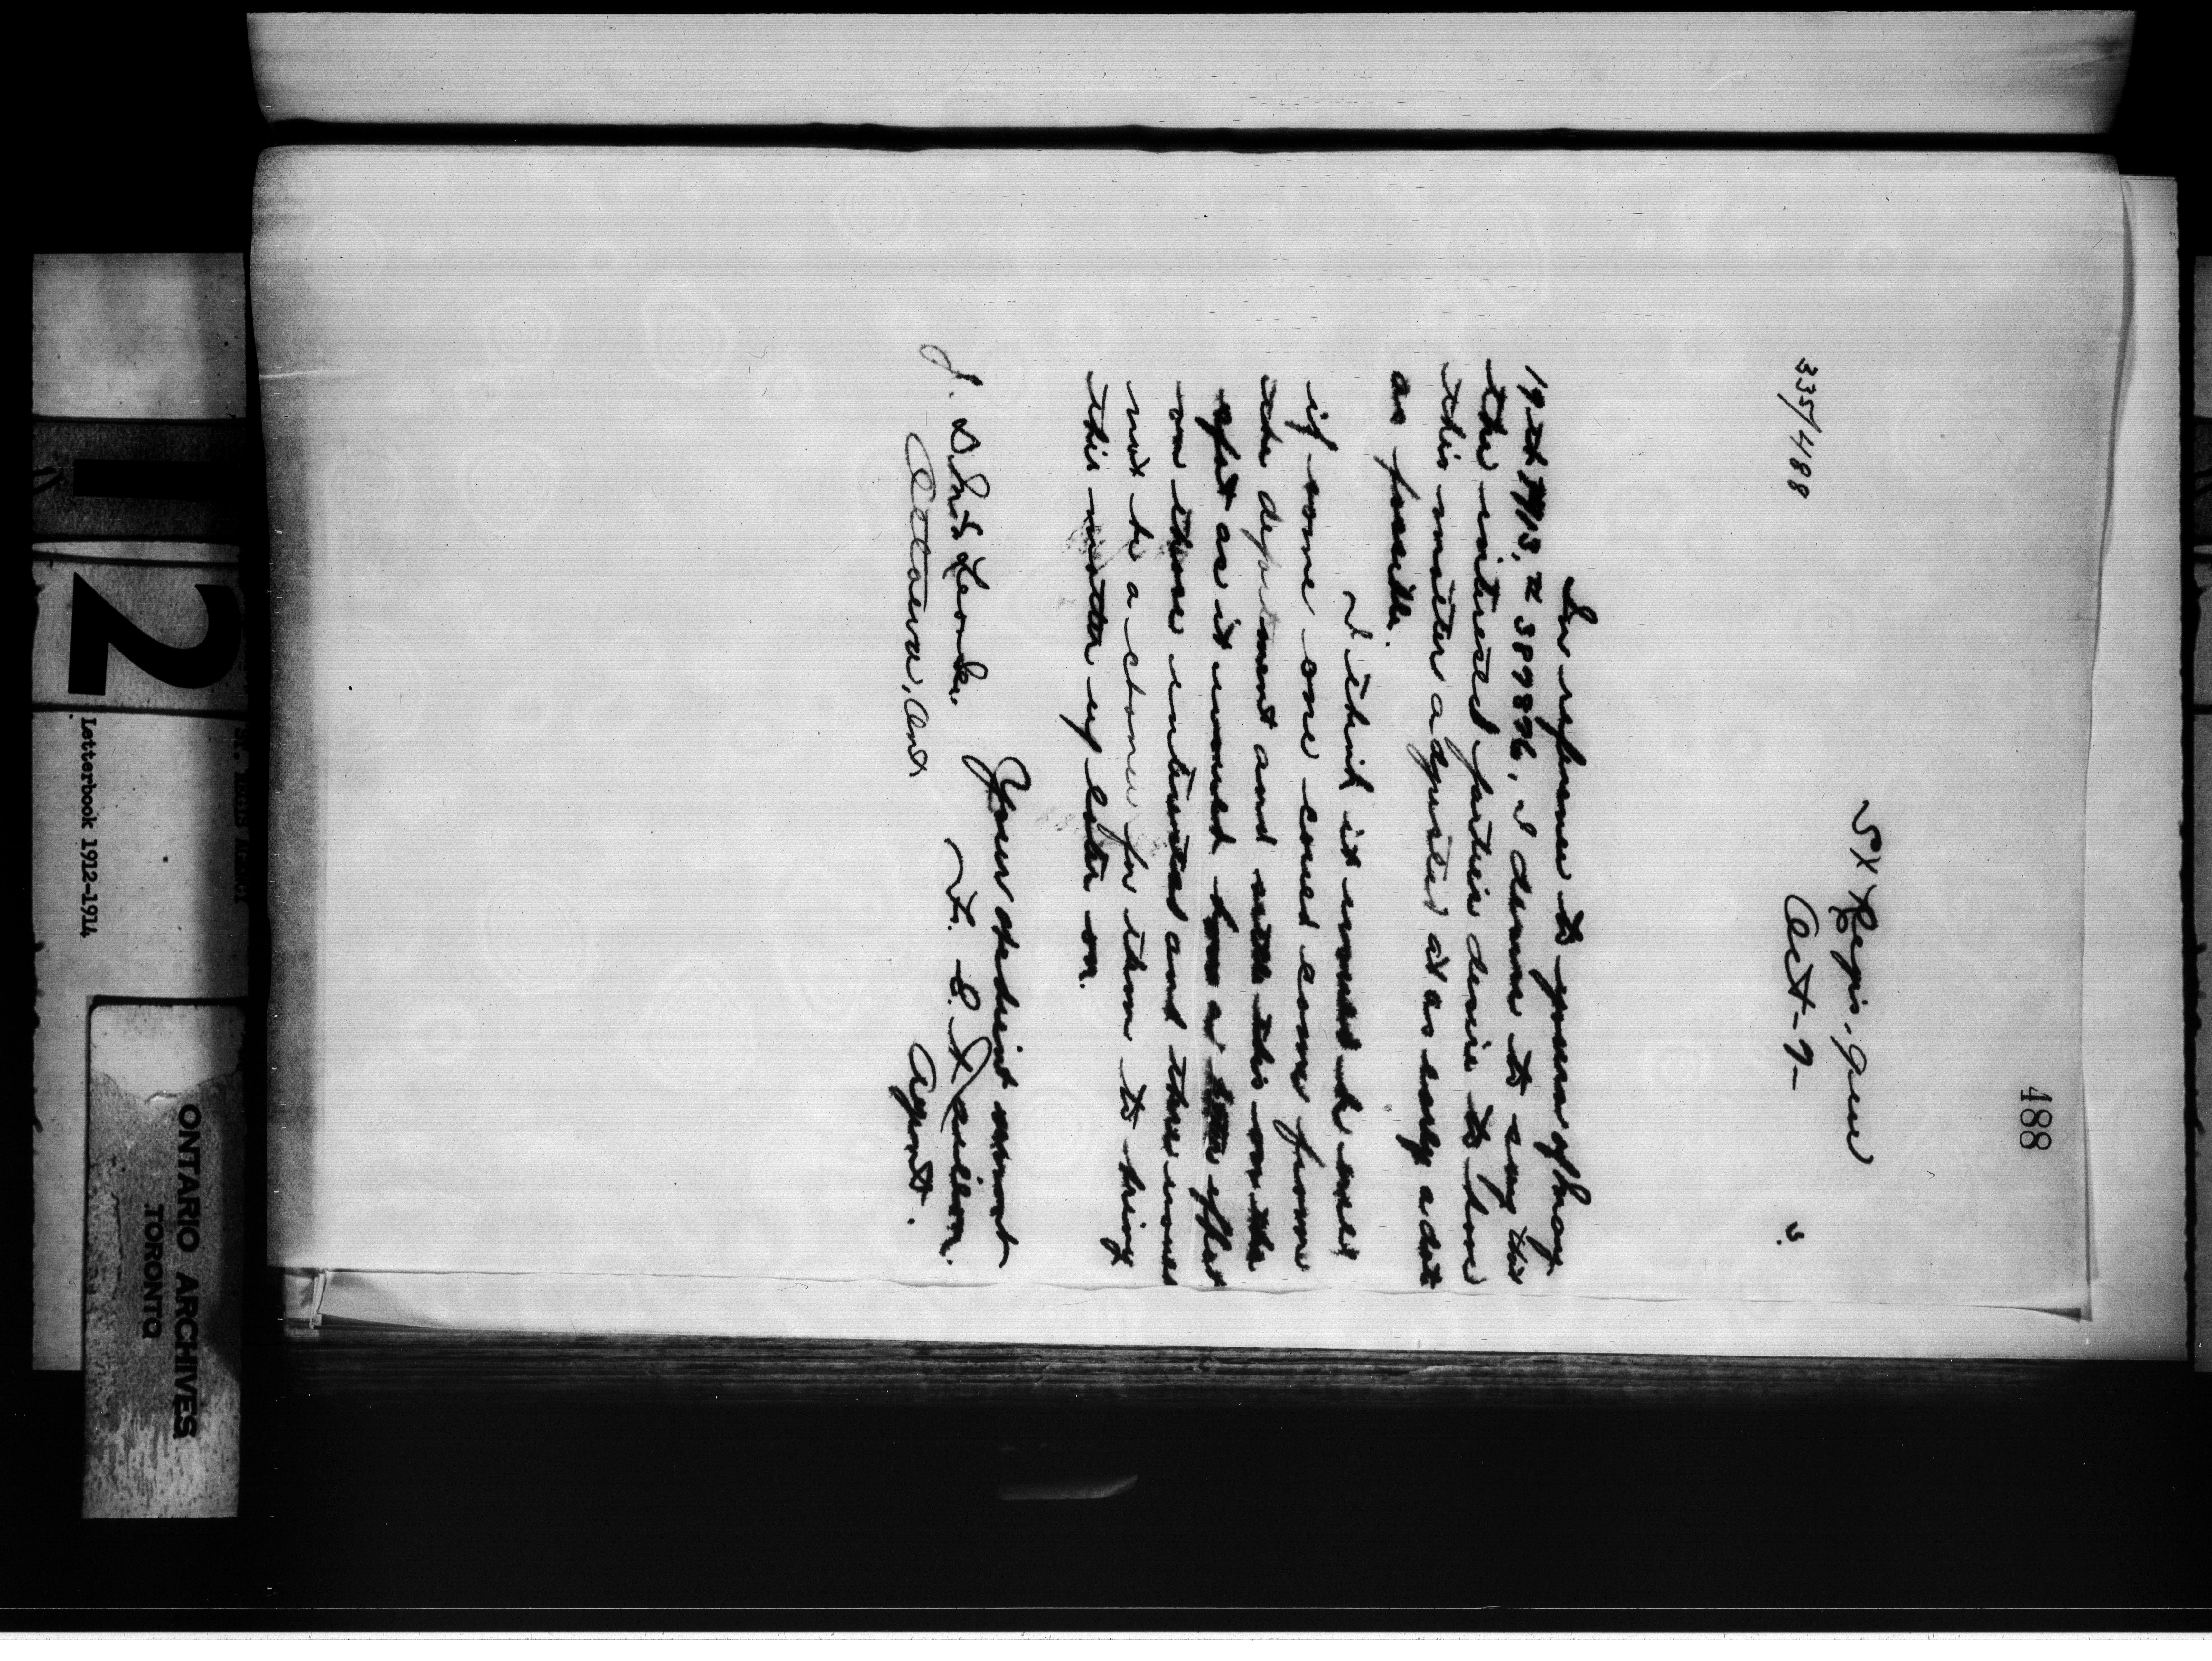 488
St Regis, Que
335/488
Oct - 9 - 3.
In reference to yours of Aug
19th 1913, # 389896, I desire to say that
the interested parties desire to have
this matter adjusted at as early a date
as possible.
I think it would be well
if some one could come from
the department and settle this on the
spot as it would have a better effect
on those interested and there would
not be a chance for them to bring
this matter up later on.
Your obedient servant
F. E. Taillon.
Agent.
J. D. McLean Sec.
Ottawa, Ont
12
Letterbook 1912-1914
ONTARIO ARCHIVES
TORONTO